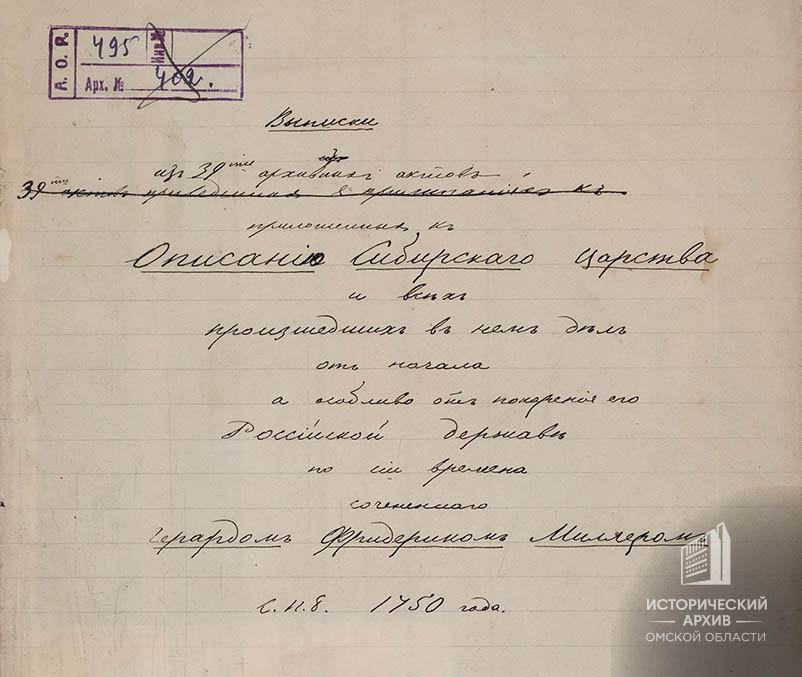 А. О. Р.
495
Инв. №
Арх. № 402.
Выписки
изъ 39ти архивныхъ актовъ
39ти актовъ приведенныхъ в примечанiяхъ къ
приложенныхъ къ
Описанію Сибирскаго Царства
и всѣхъ
произшедшихъ в немъ дѣлъ
отъ начала
а особливо отъ покоренiя его
Россійской державѣ
по сіи времена
сочененнаго
Герардомъ Фридерикомъ Миллеромъ
С.П.б. 1750 года.
ИСТОРИЧЕСКИЙ
АРХИВ
ОМСКОЙ ОБЛАСТИ